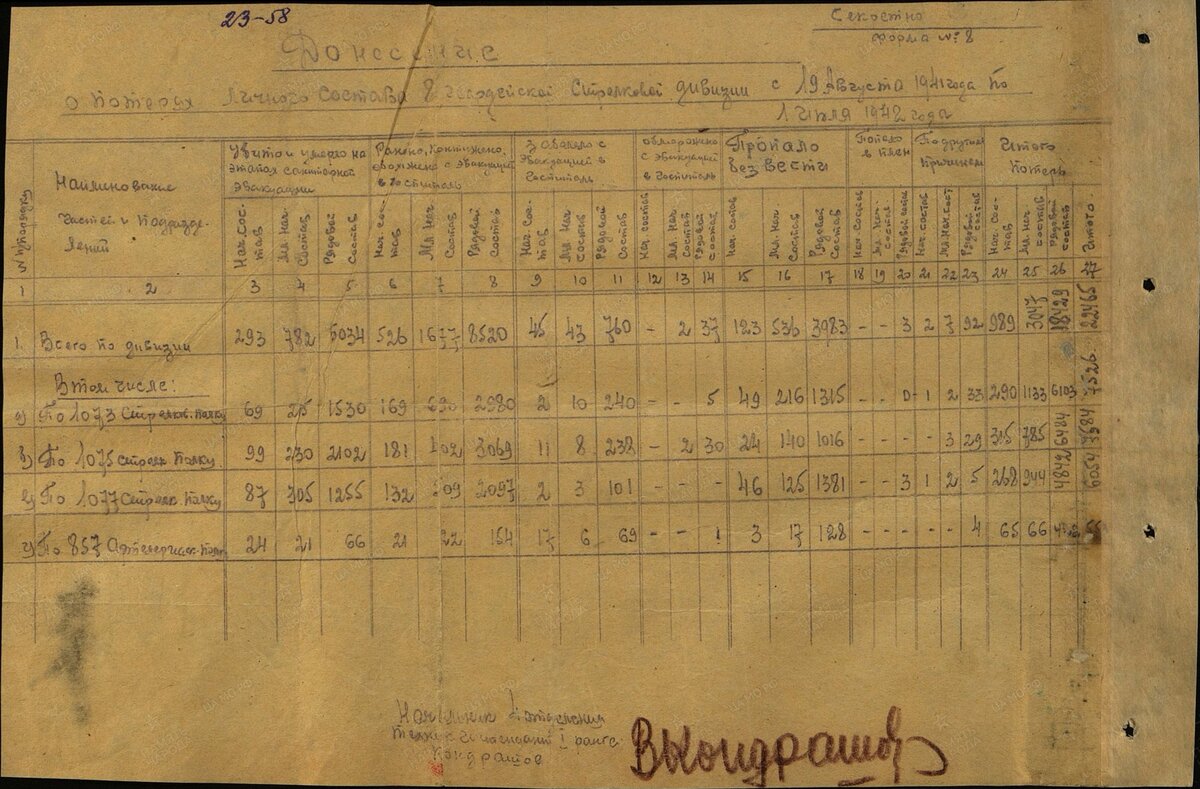 23-58
Секретно
Форма №8
Донесение
о потерях личного состава 8 гвардейской Стрелковой дивизии с 19 Августа 1941 года по
1 июля 1942 года
№ по порядку
Наименование
частей и подразде-
лений
Убито и умерло на
этапах санитарной
эвакуации
Ранено, контужено,
с эвакуацией
в госпиталь
Заболело с
эвакуацией в
госпиталь
обморожено
с эвакуацией
в госпиталь
Пропало
без вести
Попало
в плен
По другим
причинам
Итого
потерь
Итого
Нач. сос-
тав
Мл. нач.
состав
Рядовой
состав
Нач. сос-
тав
Мл. нач.
состав
Рядовой
состав
Нач. сос-
тав
Мл. нач.
состав
Рядовой
состав
Нач. состав
Мл. нач.
состав
Рядовой
состав
Нач. состав
Мл. нач.
состав
Рядовой
состав
Нач. состав
Мл. нач.
состав
Рядовой состав
Нач. состав
Мл. нач. сост
Рядовой
состав
Нач. сос-
тав
Мл. нач
состав
Рядовой
состав
1 2 3 4 5 6 7 8 9 10 11 12 13 14 15 16 17 18 19 20 21 22 23 24 25 26 27
1. Всего по дивизии 293 782 5034 526 1677 8520 45 43 760 - 2 37 123 536 3983 - - 3 2 7 92 989 3047 18429 22465
В том числе:
а) По 1073 Стрелк. полку 69 1530 169 2980 2 10 240 - - 5 49 216 1315 - - 1 2 33 290 1133 6103 7526
б) По 1075 стрелк полку 99 230 2102 181 3069 11 8 238 - 2 30 24 140 1016 - - - - 3 29 315 785 6484 7584
в) По 1077 Стрелк полку 87 305 1255 132 2097 2 3 101 - - - 46 125 1381 - - 3 1 2 5 268 944 4842 6054
г) По 857 Артиллерийск. полку 24 21 66 21 22 154 17 6 69 - - 1 3 17 128 - - - - - 4 65 66
Начальник 4 отделения
техник интендант I ранга
Кондрашов
ВКондрашов